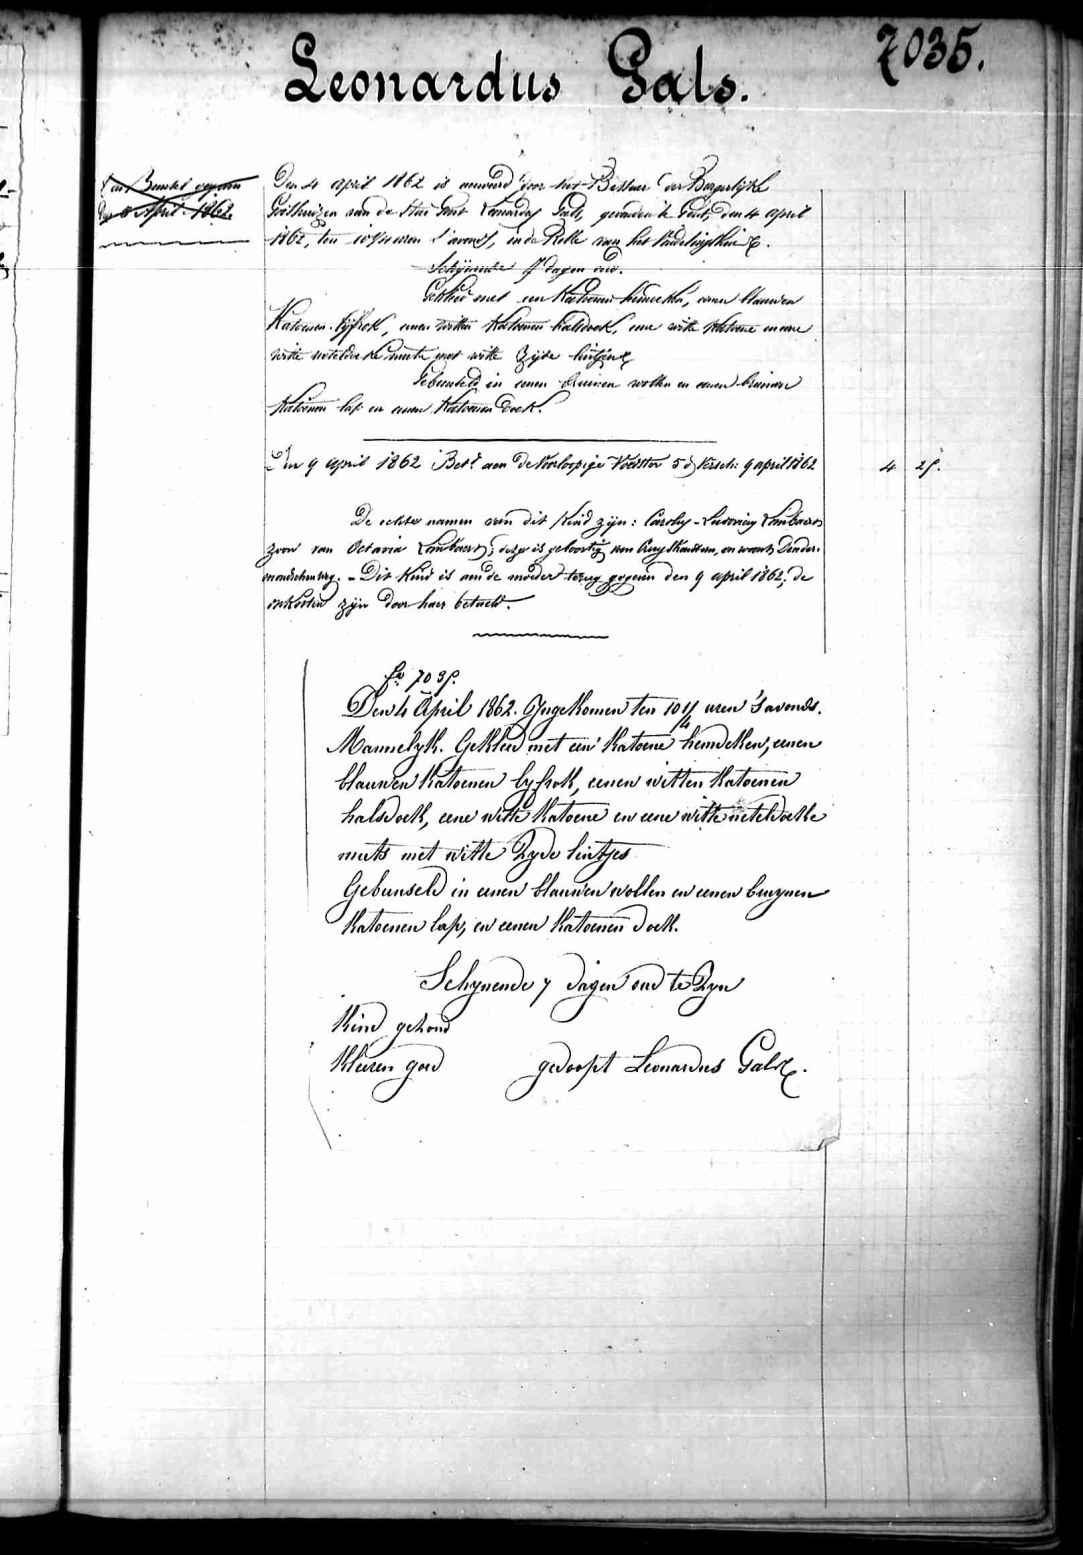 7035.
Leonardus Gals.
den 8 April 1862.
Den 4 april 1862 is aanveerd door het Bestuer der Burgerlijke
Godshuizen van de Stad Gent Leonardus Gals, gevonden te Gent, den 4 april
1862, ten 10 1/4 uren 's avonds, in de Rolle van het Vindelingshuis.
Schijnende 7 dagen oud.
Gekleed met een Katoenen hemdeken, eenen blauwen
Katoenen lijfrok, eenen witten Katoenen halsdoek, eene witte Katoene en eene
witte neteldoeke muts met witte Zijde lintjens
Gebunseld in eenen wollen en eenen bruinen
Katoenen lap en eenen Katoenen doek.
Den 9 april 1862 Bet.d aen de Voorloopige Voedster 5 d. Versch: 9 april 1862 4 25.
De echte namen van dit Kind zijn: Carolus-Ludovicus Lambaert
zoon van Octavia Lambaert; deze is geboortig van Cruyshautem, en woont Dender-
mondschensteeg. - Dit Kind is aen de moeder terug gegeven den 9 april 1862; de
onkosten zijn door haer betaeld.
fo 7035.
Den 4 April 1862. Yngekomen ten 10 1/4 uren 's avonds.
Mannelyk. Gekleed met een Katoene hemdeken, eenen
blauwen Katoenen lyfrok, eenen witten Katoenen
halsdoek, eene witte Katoene en eene witte neteldoeke
muts met witte Zyde lintjes
Gebunseld in eenen blauwen wollen en eenen bruynen
Katoenen lap, en eenen Katoenen doek.
Schynende 7 dagen oud te Zyn
Kind gezond
Kleeren goed gedoopt Leonardus Gals.